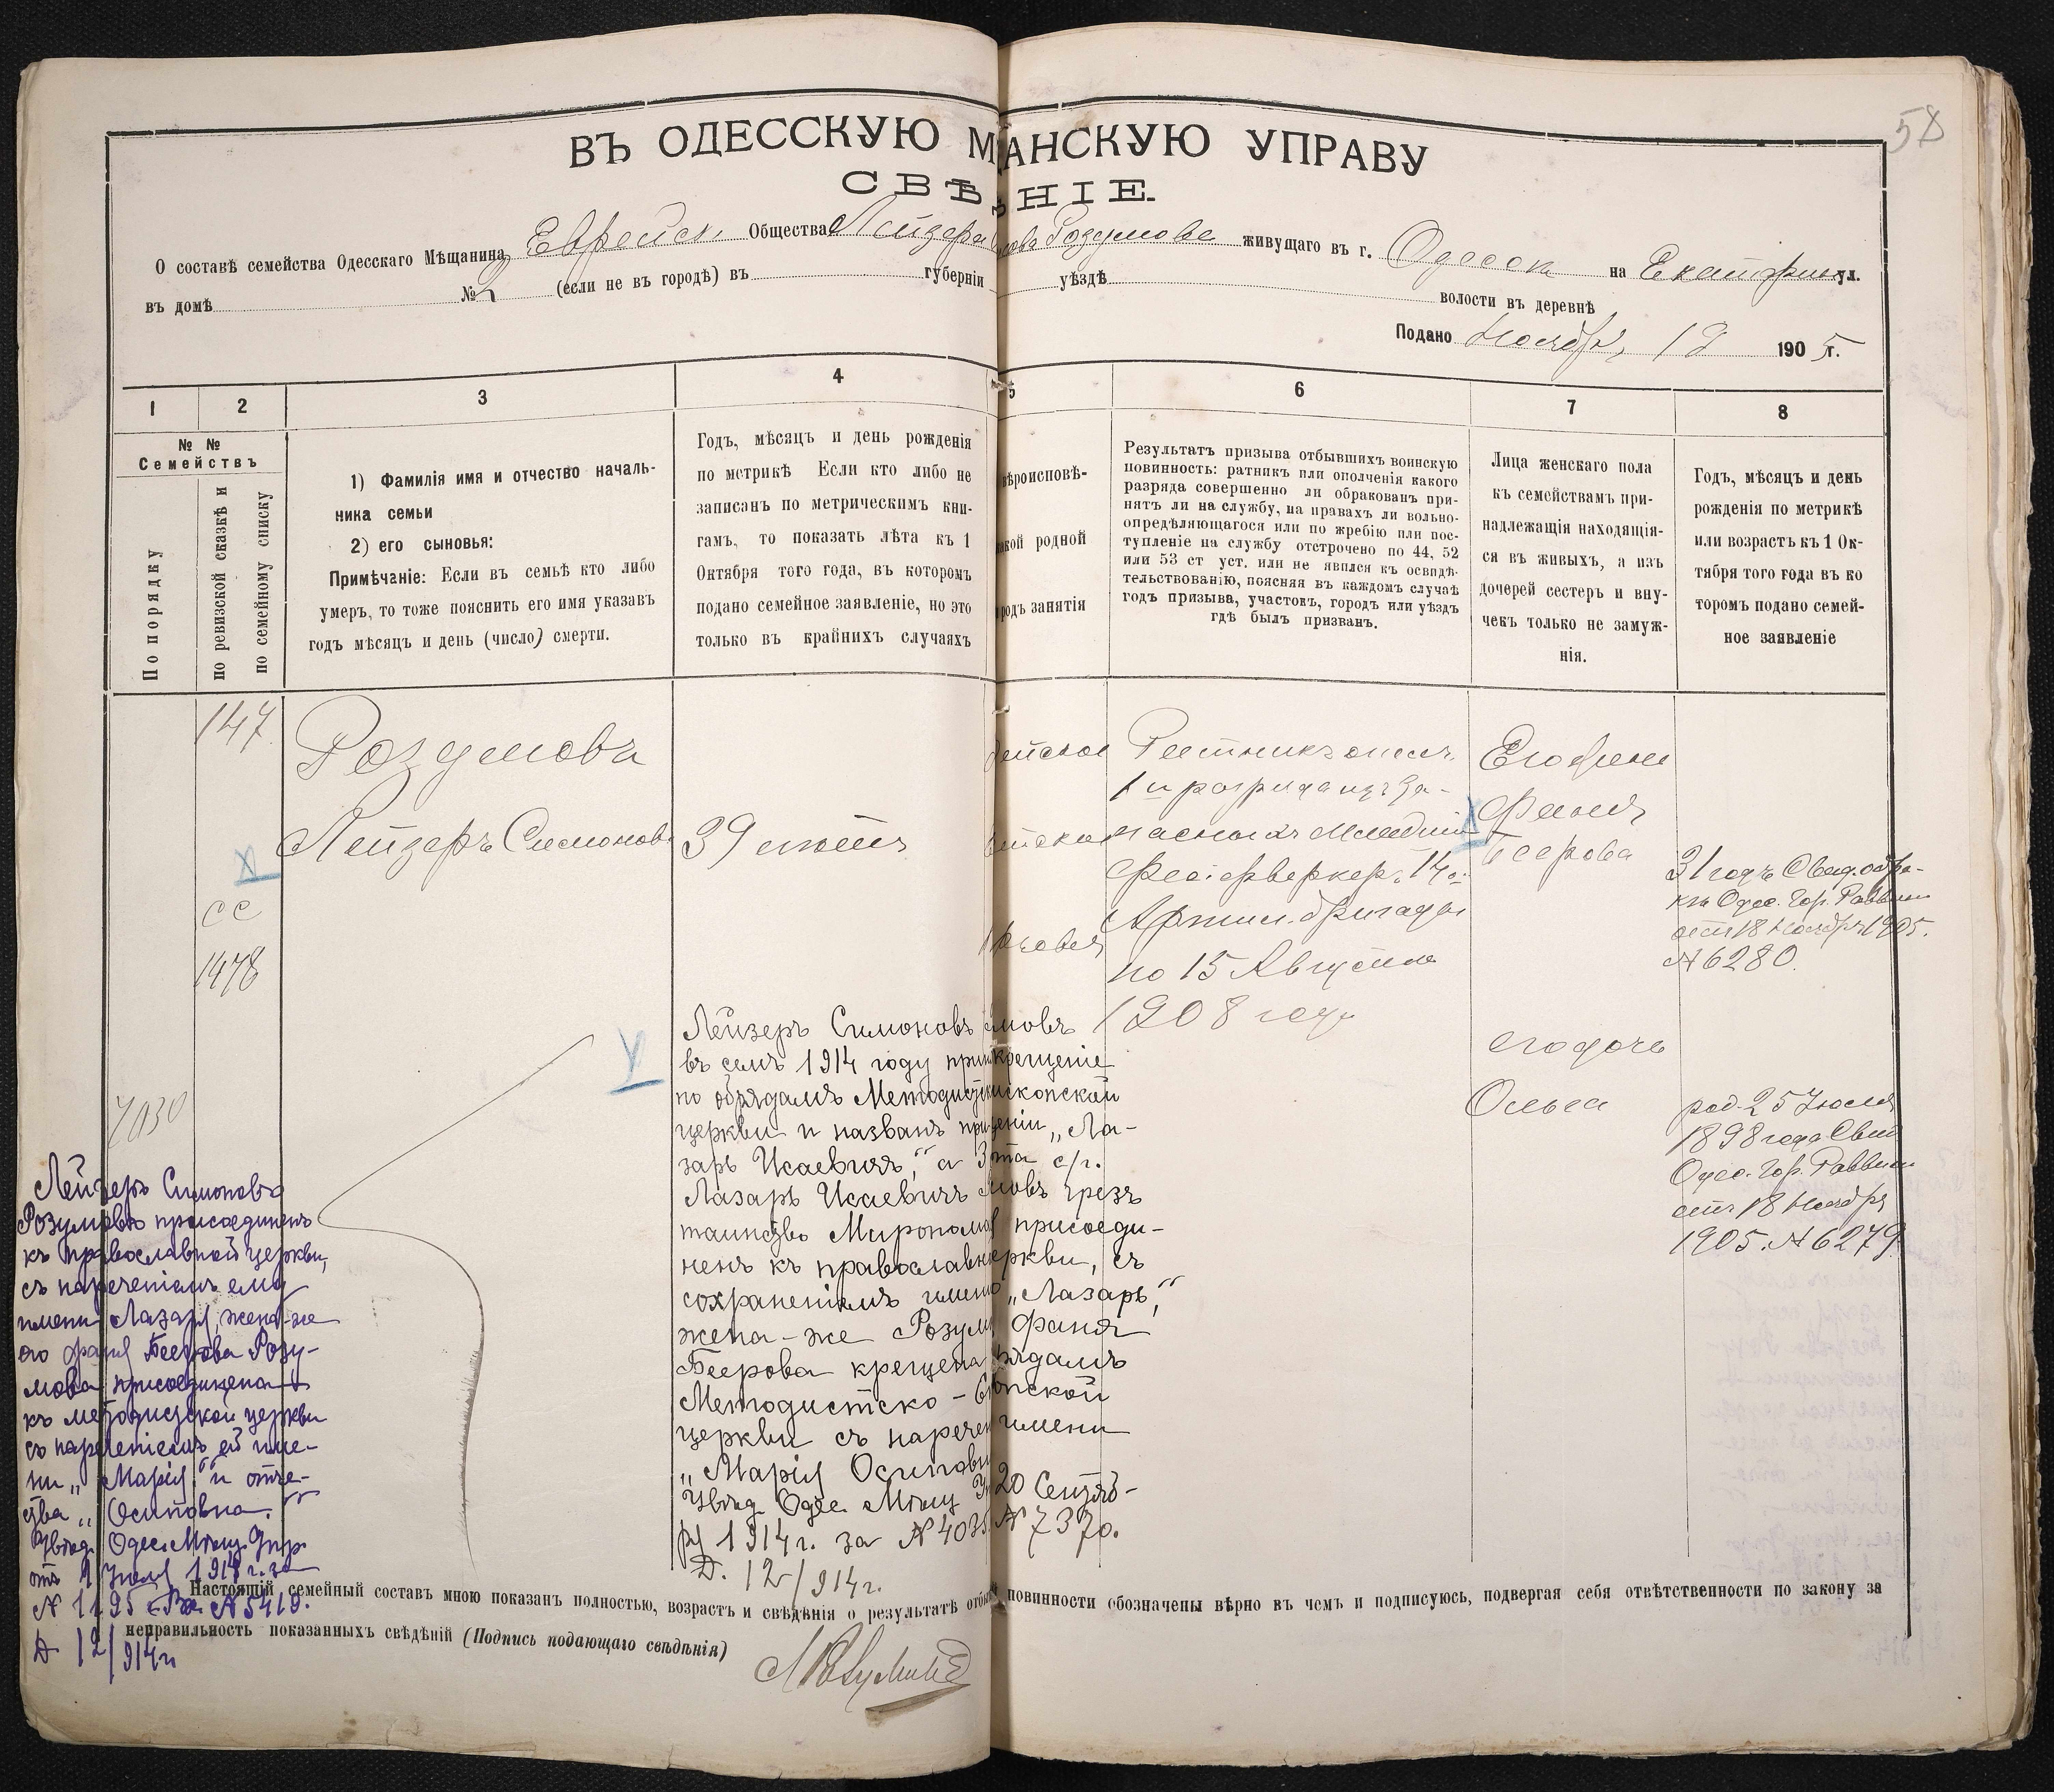 58
ВЪ ОДЕССКУЮ М АНСКУЮ УПРАВУ
СВѢ НІЕ.
О составѣ семейства Одесскаго Мѣщанина Еврейск. Общества Лейзера Розумова живущаго въ г. Одессѣ на Екатерин ул.
въ домѣ № (если не въ городѣ) въ губерніи уѣздѣ волости въ деревнѣ
Подано Ноябр. 19 1905 г.
1
2
3
4
5
6
7
8
№ №
Семействъ
По порядку
по ревизской сказкѣ и
по семейному списку
1) Фамилія имя и отчество началь-
ника семьи
2) его сыновья:
Примѣчаніе: Если въ семьѣ кто либо
умеръ, то тоже пояснить его имя указавъ
годъ мѣсяцъ и день (число) смерти.
Годъ, мѣсяцъ и день рожденія
по метрикѣ Если кто либо не
записанъ по метрическимъ кни-
гамъ, то показать лѣта къ 1
Октября того года, въ которомъ
подано семейное заявленіе, но это
только въ крайнихъ случаяхъ
вѣроисповѣ-
акой родной
родъ занятія
Результатъ призыва отбывшихъ воинскую
повинность: ратникъ или ополченія какого
разряда совершенно ли обракованъ при-
нятъ ли на службу, на правахъ ли вольно-
опредѣляющагося или по жребію или пос-
тупленіе на службу отсрочено по 44, 52
или 53 ст уст. или не явился къ освидѣ-
тельствованію, поясняя въ каждомъ случаѣ
годъ призыва, участокъ, городъ или уѣздъ
гдѣ былъ призванъ.
Лица женскаго пола
къ семействамъ при-
надлежащія находящія-
ся въ живыхъ, а изъ
дочерей сестеръ и вну-
чекъ только не замуж-
нія.
Годъ, мѣсяцъ и день
рожденія по метрикѣ
или возрастъ къ 1 Ок-
тября того года въ ко
торомъ подано семей-
ное заявленіе
147
Розумовъ
Лейзеръ Симоновъ
39 лѣтъ
сс
1478
7030
Ратникъ опол.
1й разряда изъ за-
пасныхъ Младшій
Фейерверкеръ 14й
Артил. бригады
по 15 Августа
1908 года
Его жена
Фаня
Беерова
31 годъ Свид. о бра-
къ Одес. Гор. Раввина
отъ 18 Ноября 1905.
№ 6280.
его дочь
Ольга
род. 25 Іюля
1898 года Свид
Одес. Гор. Раввина
отъ 18 Ноября
1905. № 6279
Лейзеръ Симоновъ мовъ
въ семъ 1914 году прин крещеніе
по обрядамъ Методистск ископской
церкви и названъ при еніи „Ла-
зарь Исаевичъ," а 3 та с/г.
Лазарь Исаевичъ мовъ чрезъ
таинство Миропома присоеди-
ненъ къ православн еркви, съ
сохраненіемъ имени „Лазарь,"
жена-же Розум Фаня
Беерова крещена ядамъ
Методистско-Е опской
церкви съ наречен имени
„Марія Осиповн
Увѣд Одес Мѣщ 20 Сентяб-
ря 1914г. за № 4035 № 7370.
Д. 12/914г.
Лейзеръ Симоновъ
Розумовъ присоединенъ
къ православной церкви,
съ нареченіемъ ему
имени Лазарь, жена-же
его Фаня Беерова Розу-
мова присоединена
къ методистской церкви
съ нареченіемъ ей име-
ни „Марія" и отче-
ства „Осиповна."
Увѣд. Одес. Мѣщ. Упр.
отъ 9 Іюля 1914 г. за
№ 1195 Вх. № 5419.
Д 12/914г
Настоящій семейный составъ мною показанъ полностью, возрастъ и свѣдѣнія о результатѣ отбы повинности обозначены вѣрно въ чемъ и подписуюсь, подвергая себя отвѣтственности по закону за
неправильность показанныхъ свѣдѣній (Подпись подающаго свѣдѣнія)